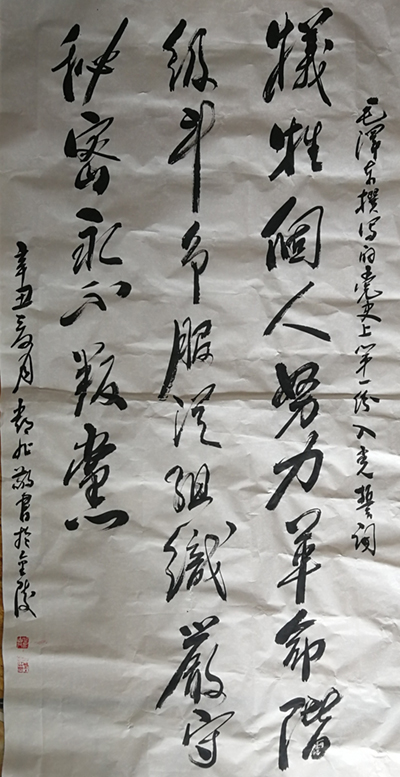 毛澤东撰写的党史上第一份入党誓词
犧牲個人努力革命階
级斗争服從组織嚴守
秘密永不叛黨
辛丑夏月敬書於金陵